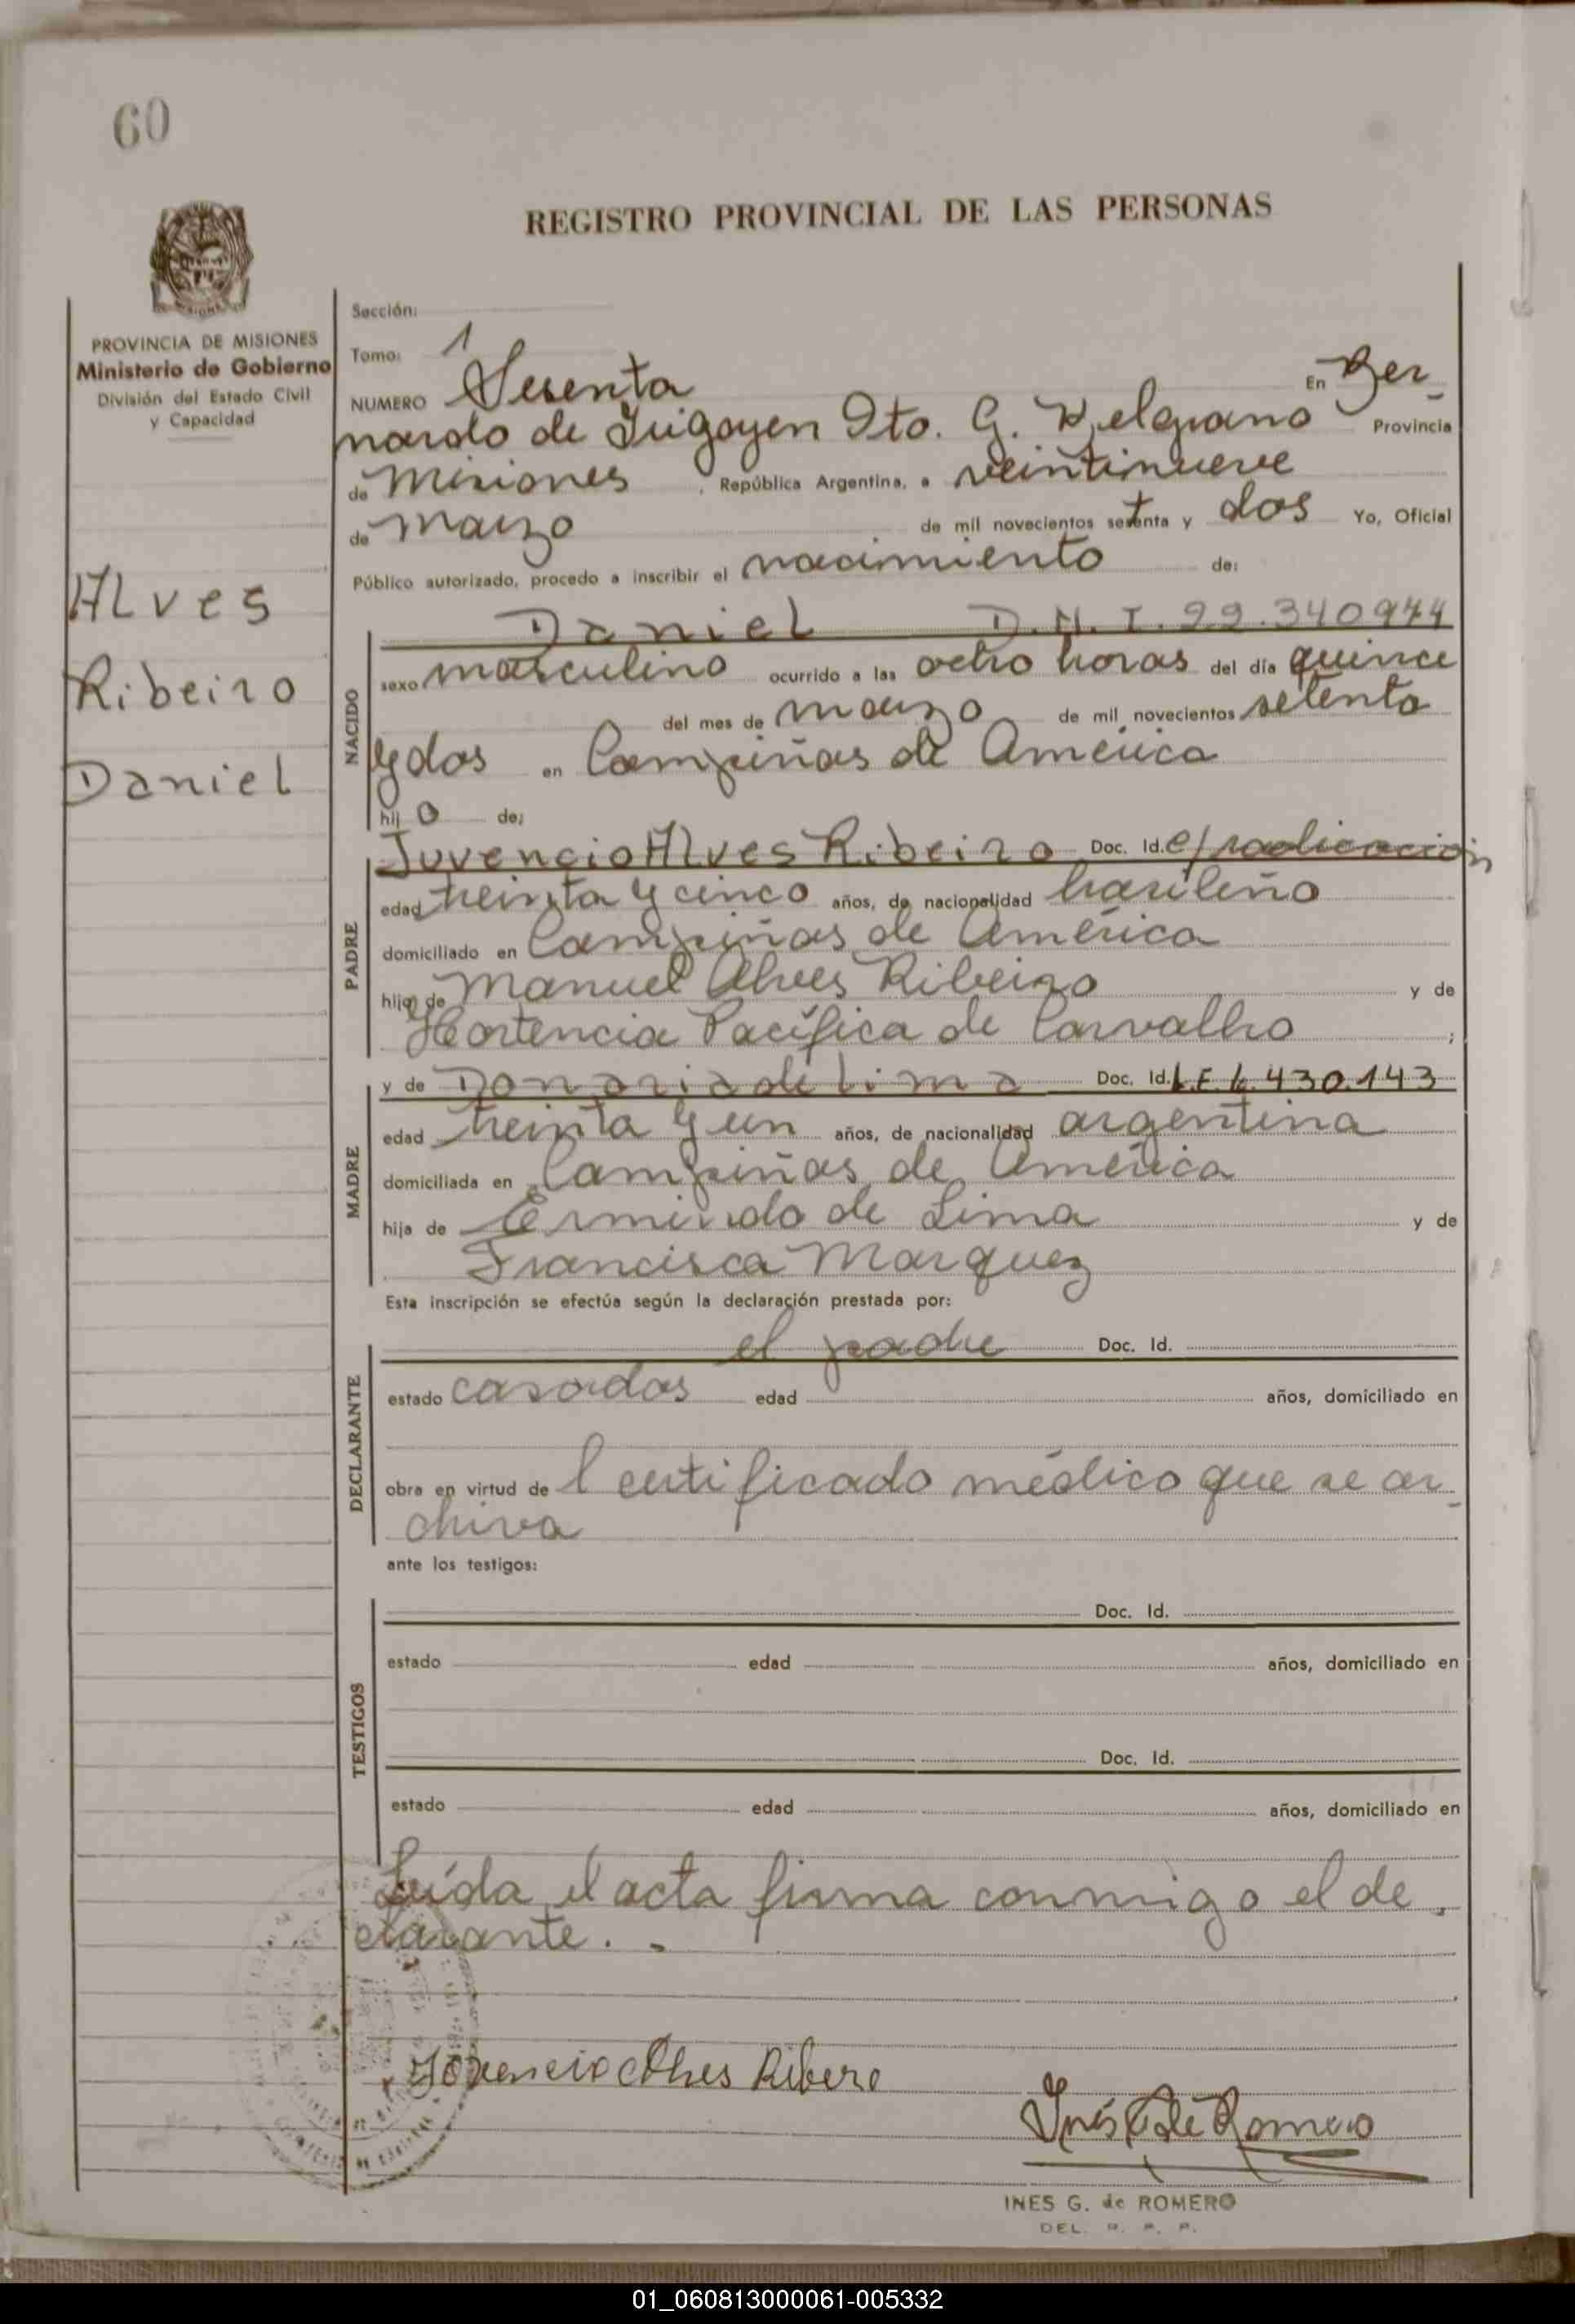 60
REGISTRO PROVINCIAL DE LAS PERSONAS
PROVINCIA DE MISIONES
Ministerio de Gobierno
División del Estado Civil
y Capacidad
Alves
Ribeiro
Daniel
Sección:
Tomo: 1
NUMERO Sesenta En Ber-
nardo de Irigoyen Dto. G. Belgrano Provincia
de Misiones, República Argentina, a veintinueve
de marzo de mil novecientos setenta y dos Yo, Oficial
Público autorizado, procedo a inscribir el nacimiento de:
NACIDO
Daniel D.N.I. 22.340944
sexo masculino ocurrido a las ocho horas del día quince
del mes de marzo de mil novecientos setenta
y dos en Campiñas de América
hijo de:
PADRE
Juvencio Alves Ribeiro Doc. Id. c/radicación
edad treinta y cinco años, de nacionalidad brasileño
domiciliado en Campiñas de América
hijo de Manuel Alves Ribeiro y de
Hortencia Pacífica de Carvalho ;
MADRE
y de Donaria de Lima Doc. Id. L.E. 6.430.143
edad treinta y un años, de nacionalidad argentina
domiciliada en Campiñas de América
hija de Ermindo de Lima y de
Francisca Marquez
Esta inscripción se efectúa según la declaración prestada por:
DECLARANTE
el padre Doc. Id.
estado casados edad años, domiciliado en
obra en virtud de l certificado médico que se ar-
chiva
ante los testigos:
TESTIGOS
Doc. Id.
estado edad años, domiciliado en
Doc. Id.
estado edad años, domiciliado en
Leída el acta firma conmigo el de-
clarante. -
Jovencio Alves Ribero
Inés G de Romero
INES G. de ROMERO
DEL. R. P. P.
01_060813000061-005332